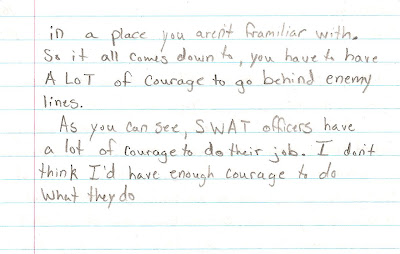 in a place you aren't framiliar with.
So it all comes down to, you have to have
A LOT of courage to go behind enemy
lines.
As you can see, SWAT officers have
a lot of courage to do their job. I don't
think I'd have enough courage to do
what they do